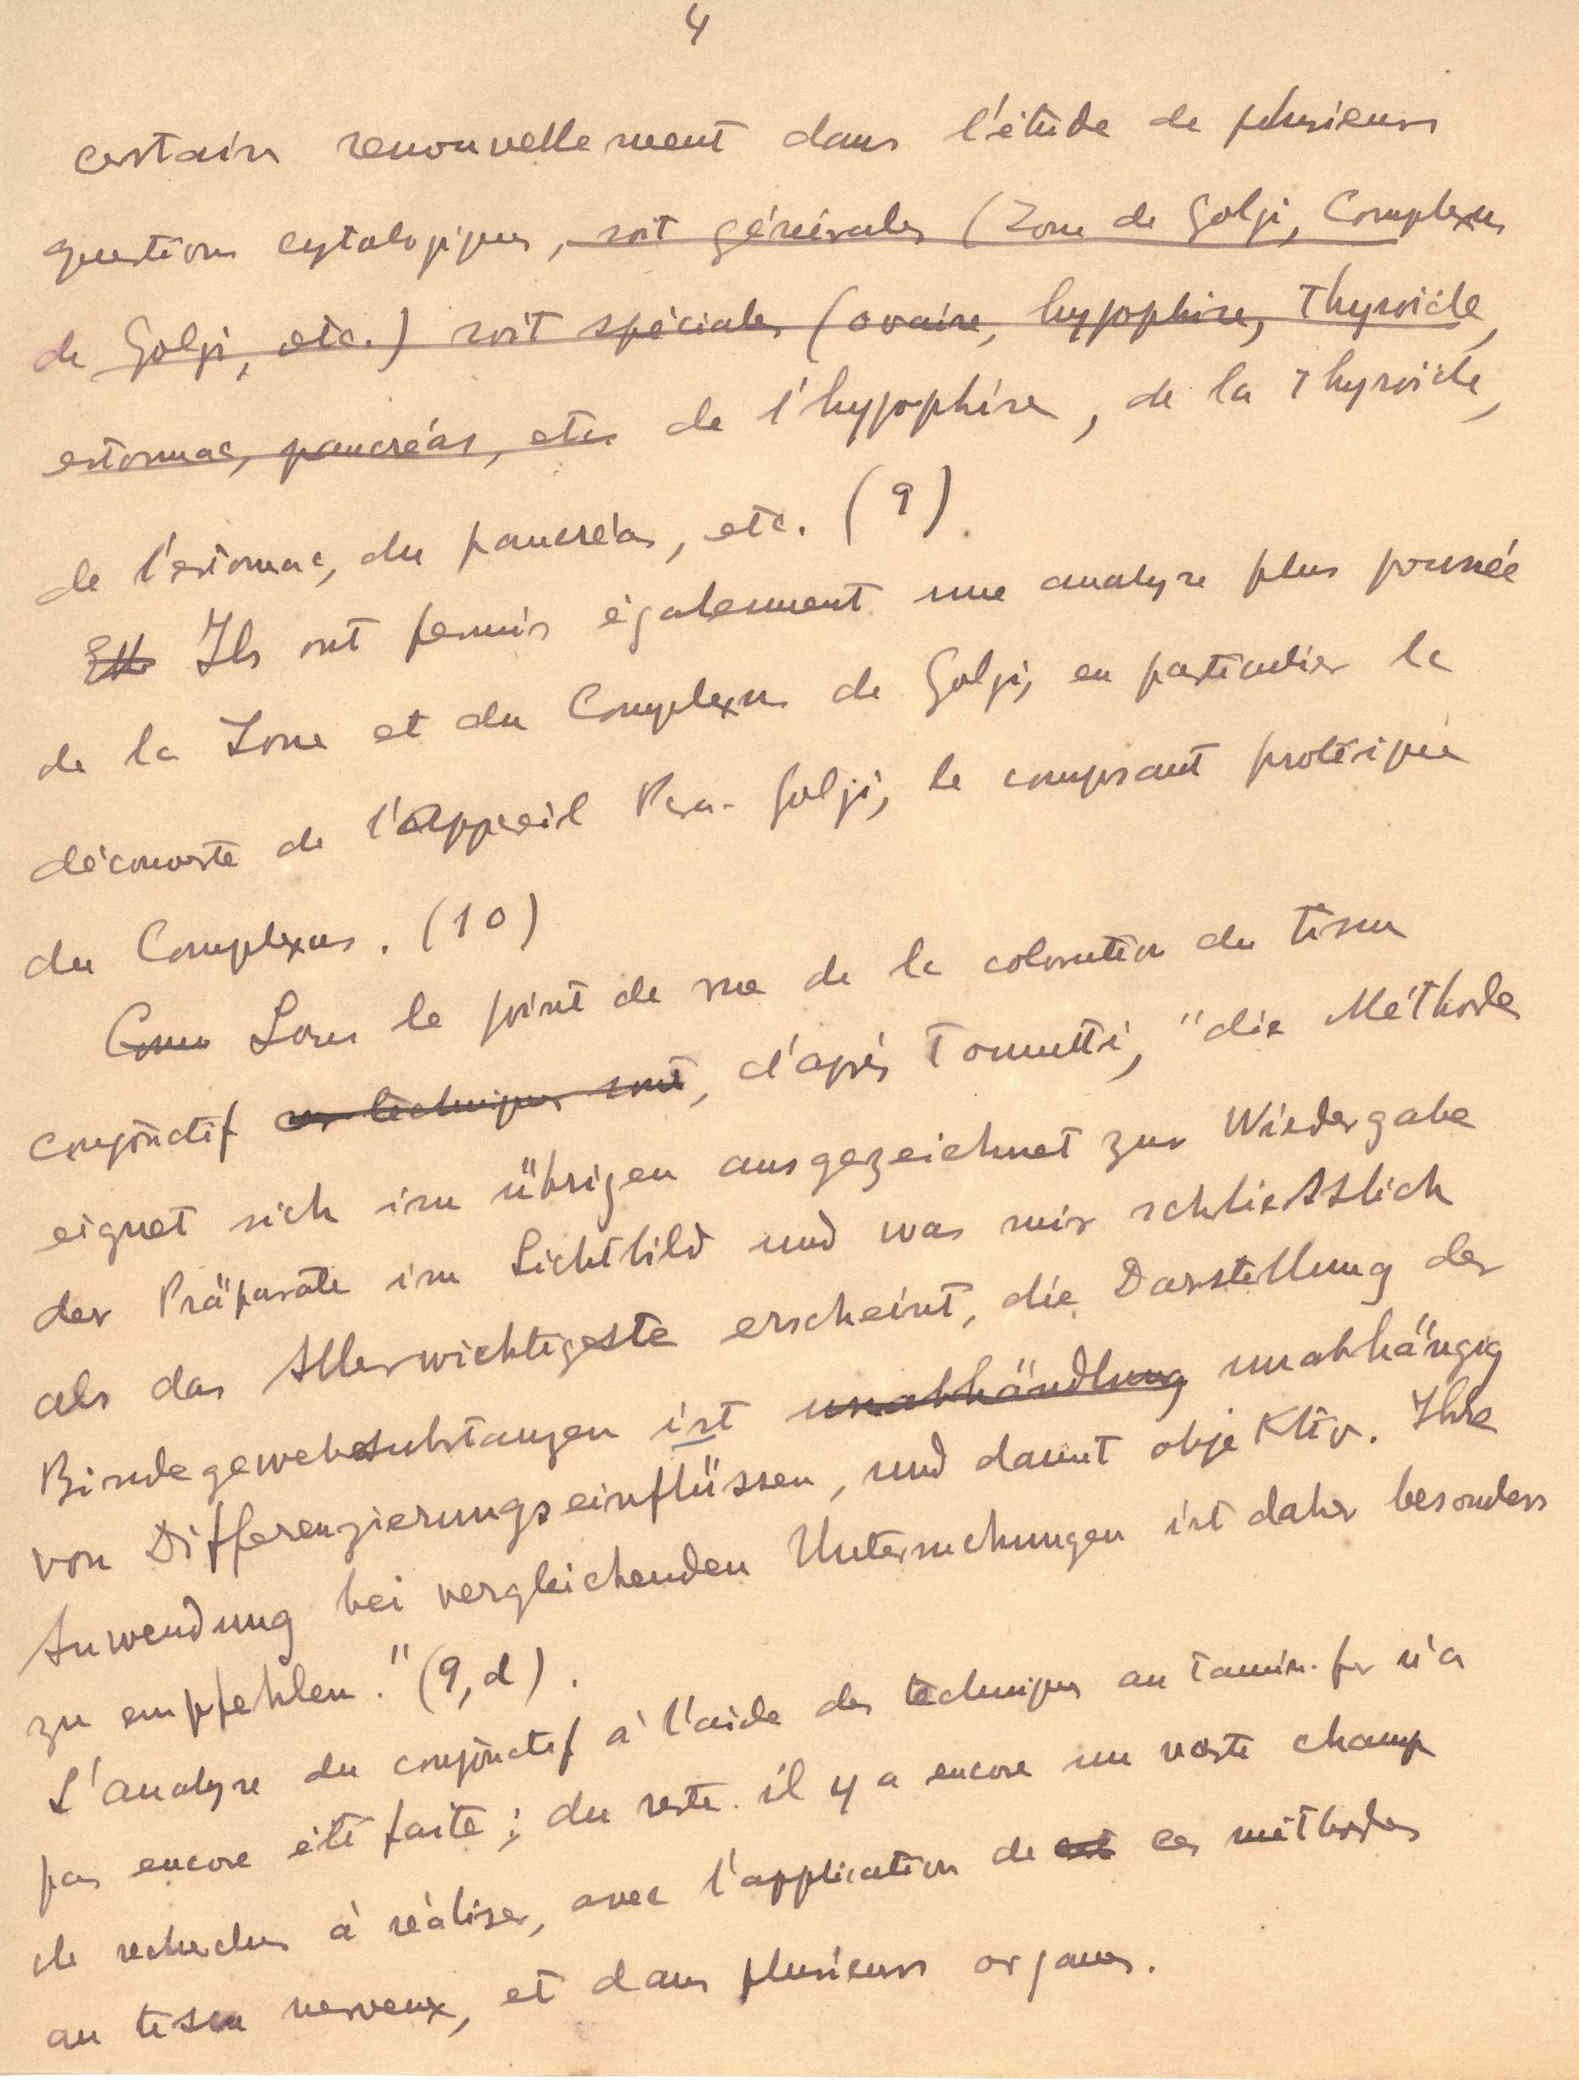 4
certain renouvellement dans l'étude de plusieurs
questions cytologiques, soit générales (Zone de Golgi, Complexus
de Golgi, etc.) soit spéciales (ovaire, hypophise, thyroïde,
estomac, pancréas, etc de l'hypophise, de la thyroïde,
de l'estomac, du pancréas, etc. (9).
Ils ont permis également une analyse plus poussée
de la Zone et du Complexus de Golgi, en particulier la
découverte de l'Appareil Para-Golgi, le composant protéique
du Complexus. (10)
Sous le point de vue de la coloration du tissu
conjonctif ces techniques sont, d'après Tonutti, "die Méthode
eignet sich im übrigen ausgezeichnet zur Wiedergabe
der Präparate im Lichtbild und was mir schliesslich
als das Allerwichtigste erscheint, die Darstellung der
Bindegewebsubstanzen ist unabhändlung unabhängig
von Differenzierungseinflüssen, und damit objektiv. Ihre
Anwendung bei vergleichenden Untersuchungen ist daher besonders
zu empfehlen." (9,d).
L'analyse du conjonctif à l'aide des techniques au tannin-fer n'a
pas encore été faite; du reste il y a encore un vaste champ
de recherches à réaliser, avec l'application de ces méthodes
au tissu nerveux, et dans plusieurs organes.